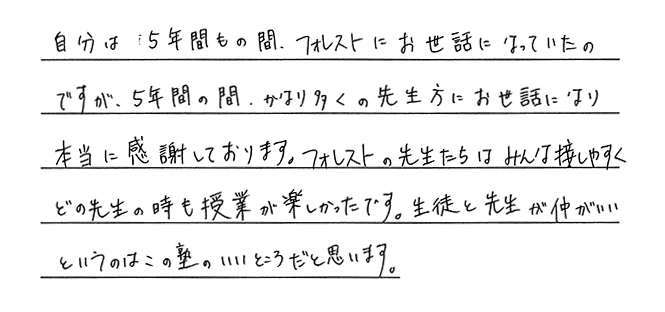 自分は5年間もの間、フォレストにお世話になっていたの
ですが、5年間の間、かなり多くの先生方にお世話になり
本当に感謝しております。フォレストの先生たちはみんな接しやすく
どの先生の時も授業が楽しかったです。生徒と先生が仲がいい
というのはこの塾のいいところだと思います。